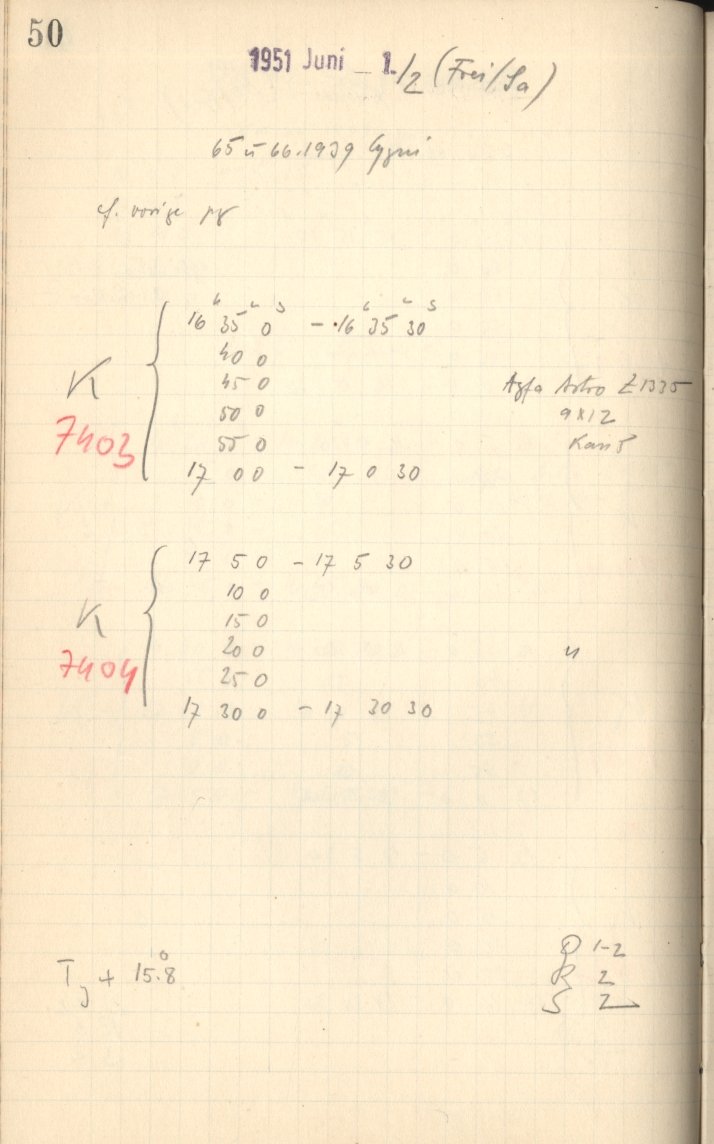 50
1951 Juni - 1./2 (Frei/Sa)
65 u 66.1939 Cygni
cf. vorige pg
16 h 35 m 0 s - 16 h 35 m 30 s
40 0
K 45 0 Agfa Astro Z1335
50 0 9x12
7403 55 0
17 00 - 17 0 30
17 5 0 - 17 5 30
10 0
K 15 0
20 0 "
7404 25 0
17 30 0 - 17 30 30
T + 15.8°
Q 1-2
R 2
S 2